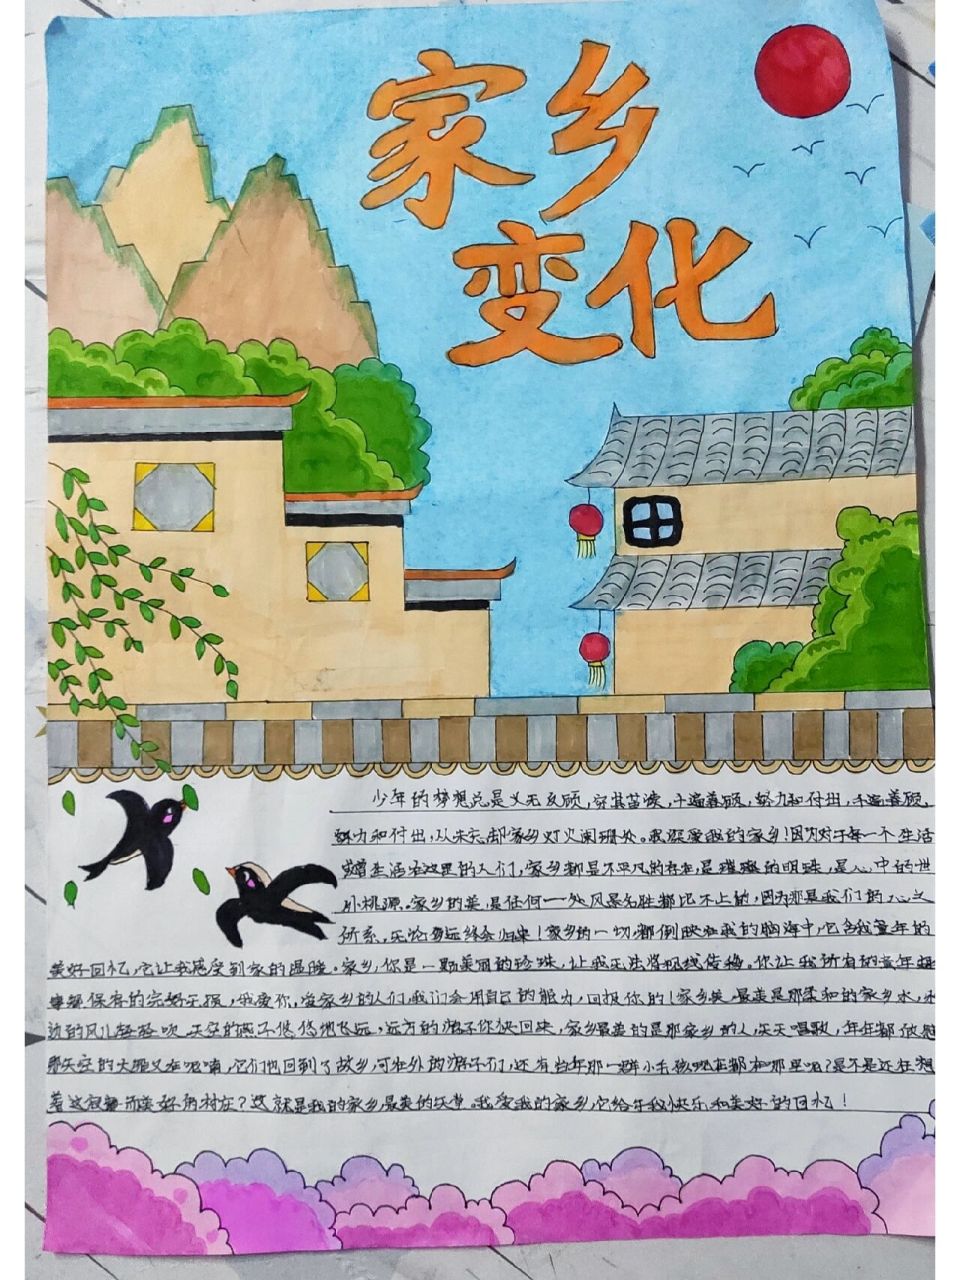 家乡
变化
少年的梦想总是义无反顾,穷其苦读,千遍善顾,努力和付出,千遍善顾,
努力和付出,从未忘却家乡灯火阑珊处。我深爱我的家乡!因为对于每一个生活
生活在这里的人们,家乡都是不平凡的存在,是璀璨的明珠,是心中的世
外桃源。家乡的美,是任何一处风景名胜都比不上的,因为那是我们的心之
所系,无论多远终会归来!家乡的一切都倒映在我的脑海中,它含我童年的
美好回忆,它让我感受到家的温暖。家乡,你是一颗美丽的珍珠,让我无法将视线傍移。你让我所有的童年
保存的完好无损,我爱你,爱家乡的人们,我们会用自己的能力,回报你的!家乡美,最美是那柔和的家乡水,
边的风儿轻轻吹,天空的燕不停悠悠地飞远,远方的游子你快回来,家乡最美的是那家乡的人,天天唱歌,年年都
那天空的大雁又在呢喃,它们也回到了故乡,可在外的游子们,还有当年那一群小手孩现在都在那里呢?是不是还在想
着这寂静而美好的村庄?这就是我的家乡最美的天堂。我爱我的家乡,它给予我快乐和美好的回忆!